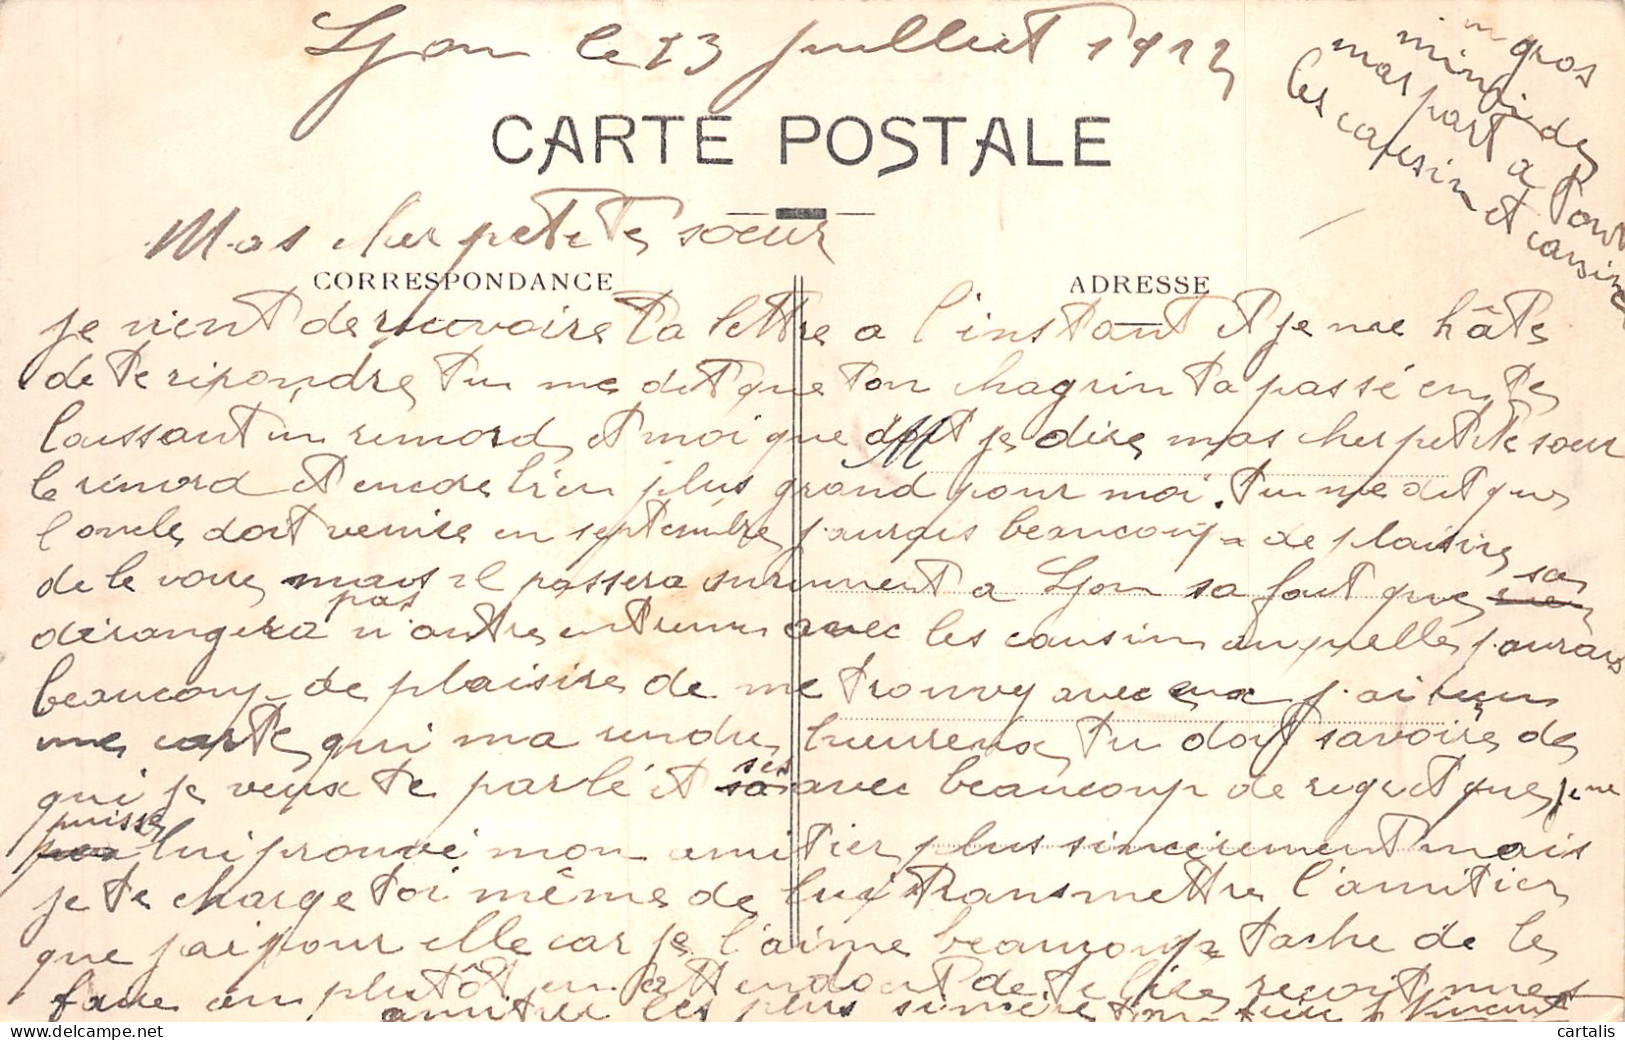 Lyon le 23 juillet 1912
un gros
mimi de
mas part a tout
les causin et causine
CARTE POSTALE
Mas cher petite sœur
CORRESPONDANCE
ADRESSE
je vient de recevoire ta lettre a l'instant et je me hâte
de te répondre tu me dit que ton chagrin ta passé en te
laissant un remord et moi que doit je dire mas cher petite sœur
le remord et encore bien plus grand pour moi. tu me dit que
l'oncle doit venire en septembre j'aurais beaucoup de plaisire
de le voire mais il passera surement a Lyon sa fait que sa
dérangera pas n'autre entrevu avec les causin auquelle j'aurais
beaucoup de plaisire de me trouvez avec eux j'ai reçu
une carte qui ma rendu heureux tu doit savoire de
qui je veux te parlé et ses avec beaucoup de regret que je ne
puisse lui prouvé mon amitier plus sincèrement mais
je te charge toi même de lui transmettre l'amitier
que j'ai pour elle car je l'aime beaucoup tache de le
faire au plutôt en attendant de te lire reçoit mes
amitier les plus sincère ton frère Vincent
cartalis